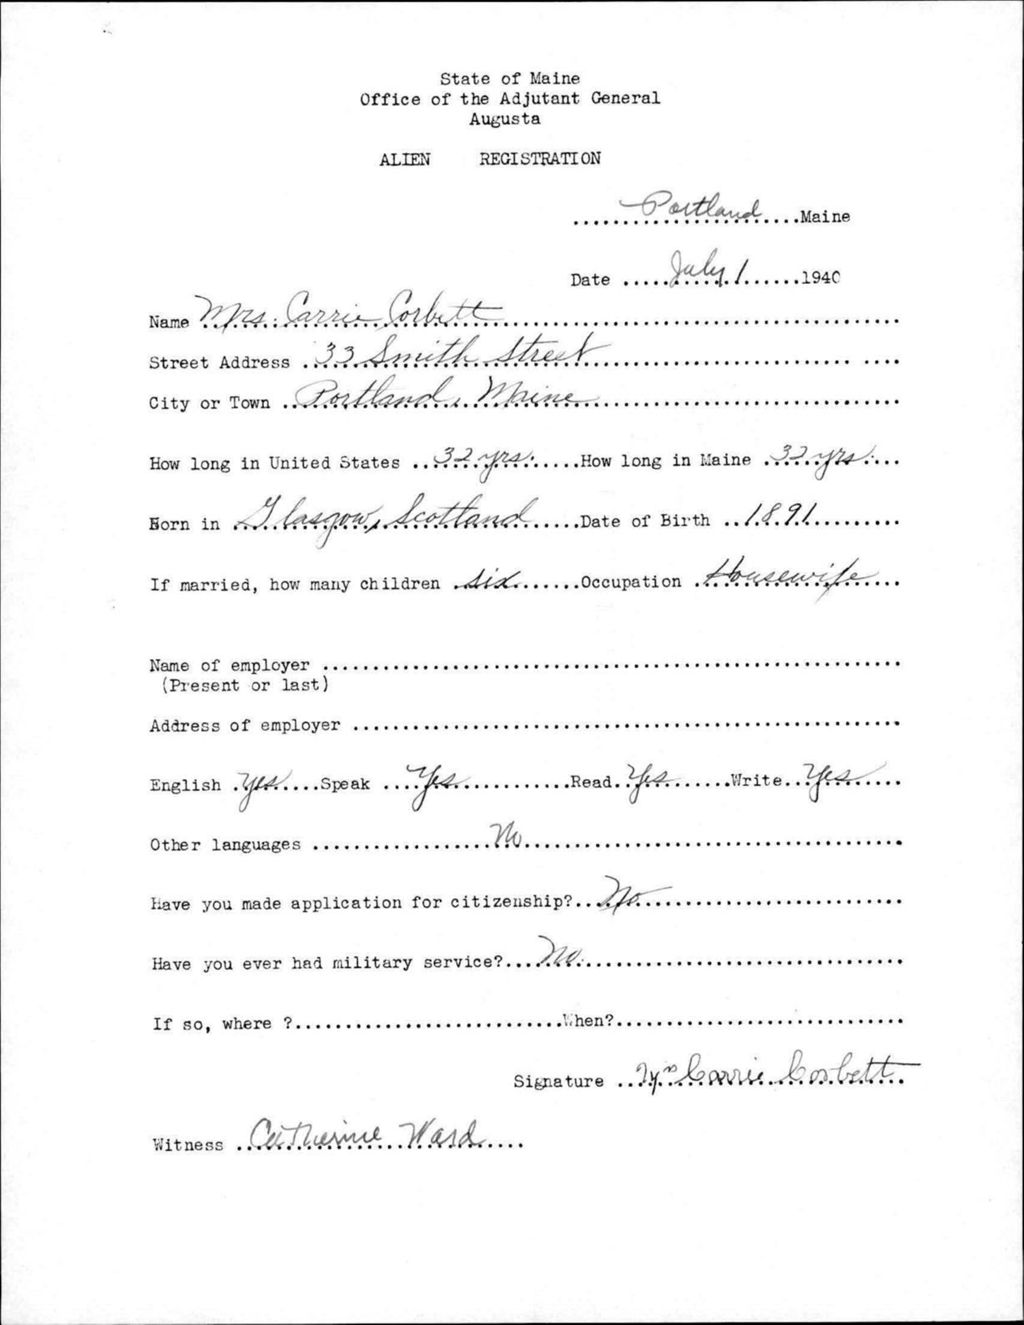 State of Maine
Office of the Adjutant General
Augusta
ALIEN REGISTRATION
Portland Maine
Date July 1 1940
Name Mrs. Carrie Corbett
Street Address 33 Smith Street
City or Town Portland, Maine
How long in United States 32 yrs. How long in Maine 32 yrs.
Born in Glasgow, Scotland Date of Birth 1891
If married, how many children six Occupation Housewife
Name of employer
(Present or last)
Address of employer
English Yes Speak Yes Read Yes Write Yes
Other languages No
Have you made application for citizenship? No
Have you ever had military service? No.
If so, where ? When?
Signature Mrs Carrie Corbett
Witness Catherine Ward